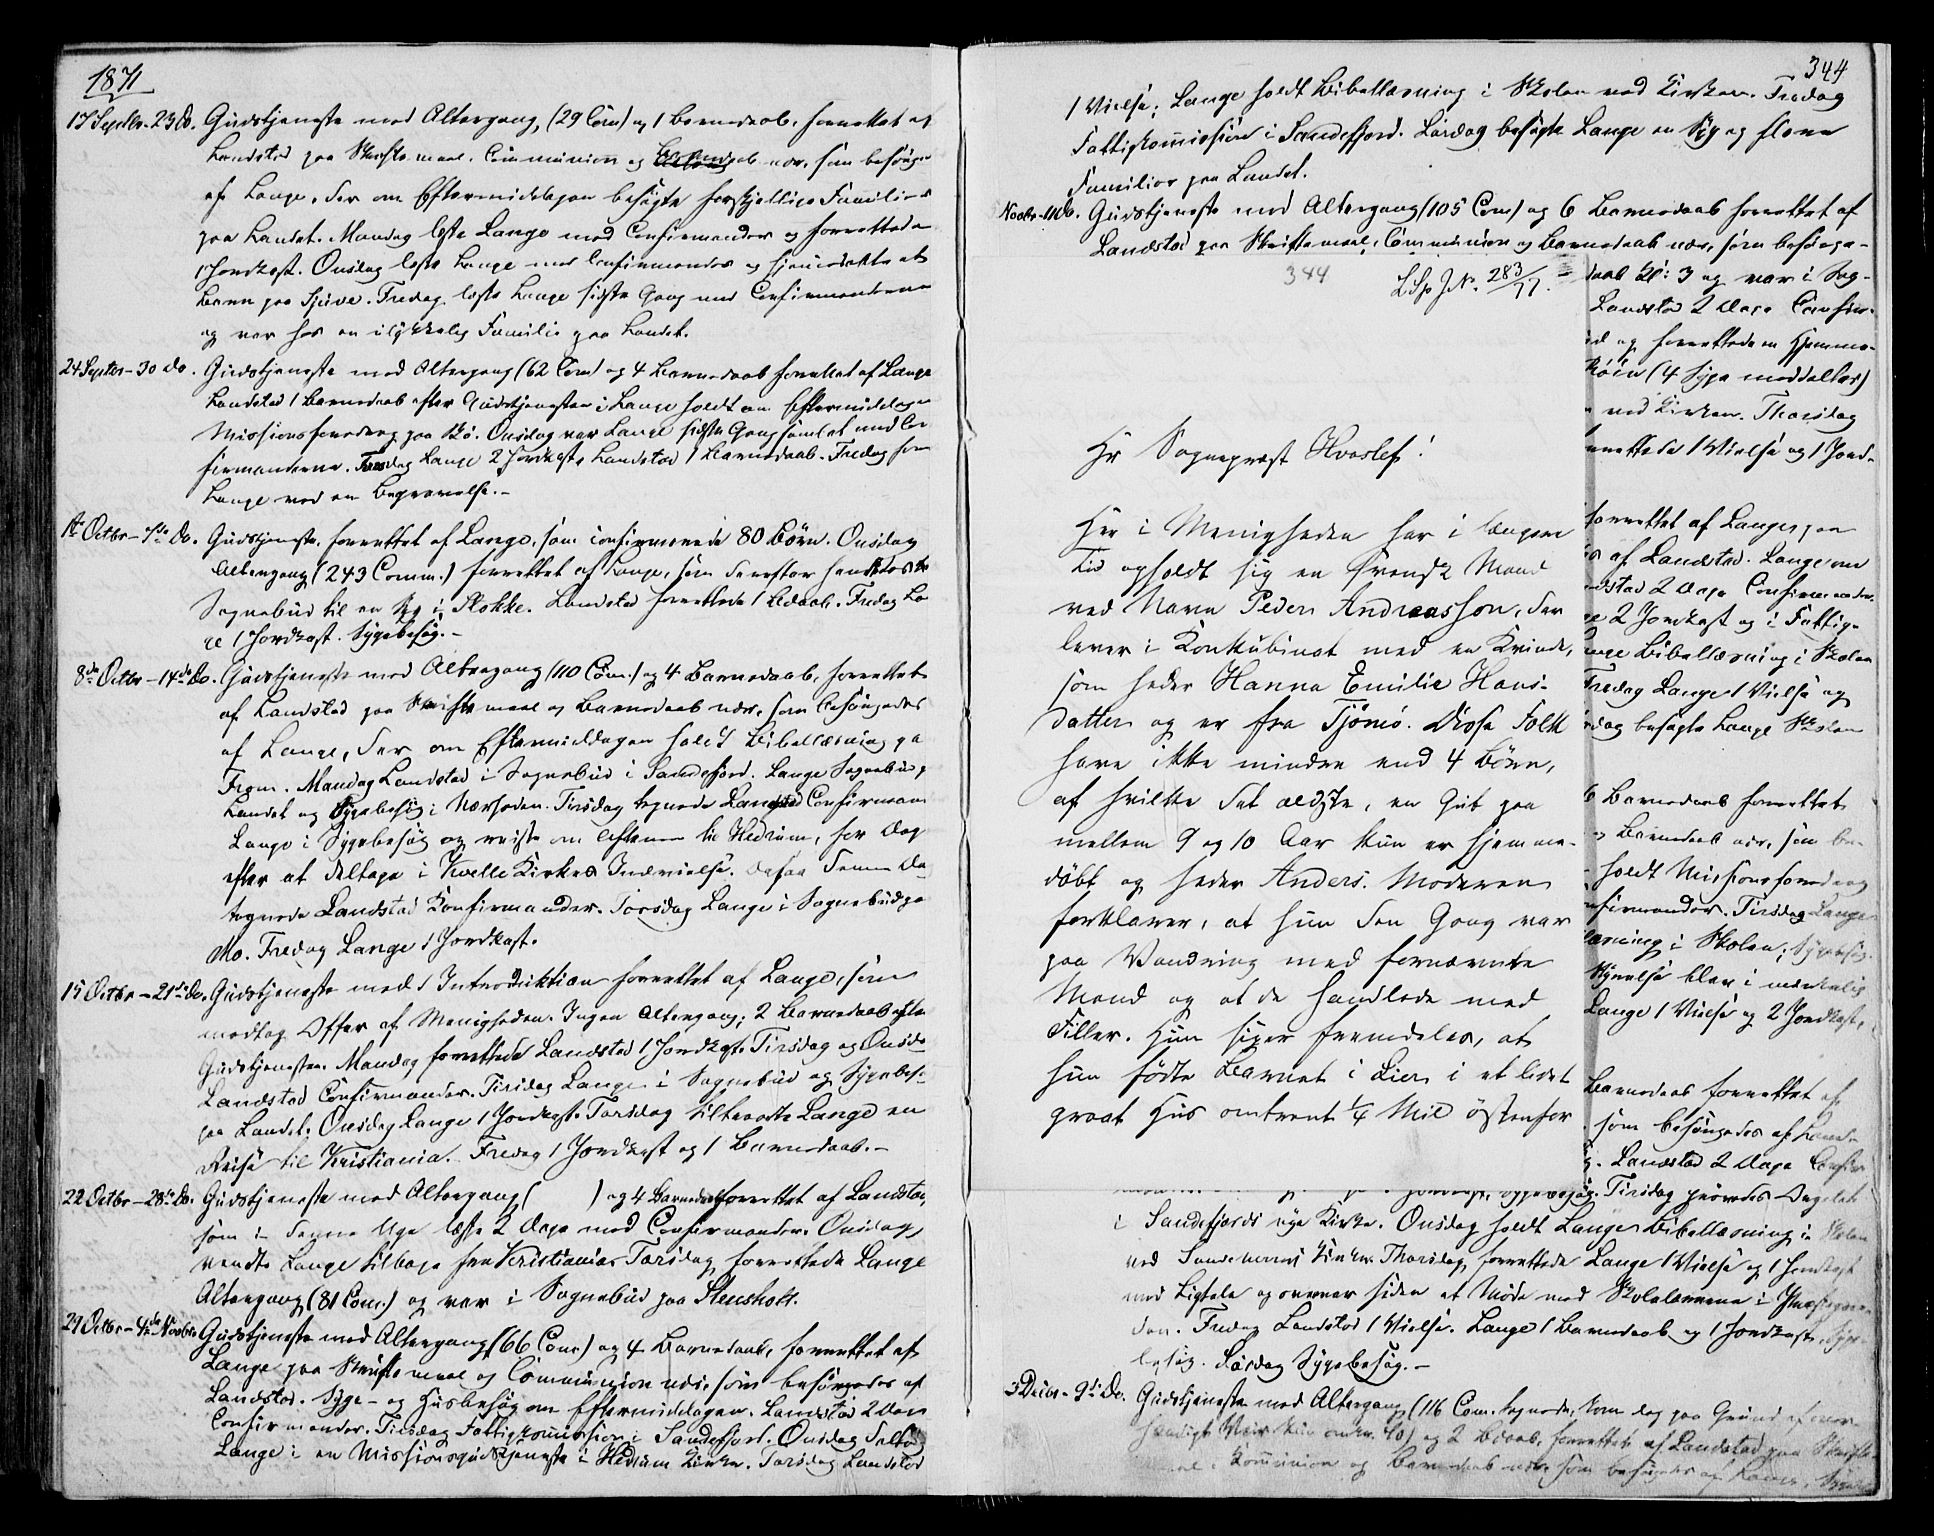 1871
17 Septbr-23 do. Gudstjeneste med Altergang, (29 Com) og 1 Barnedaab, forrettet af
Landstad paa Skriftemaal, Communion og Barnedaab nær, som besørgedes
af Lange, der om Eftermiddagen besøgte forskjellige Familier
paa Landet. Mandag læste Lange med Confirmander og forrettede
1 Jordkast. Onsdag læste Lange med Confirmander og hjemmedøbte et
Barn paa Sjuve. Fredag læste Lange sidste Gang med Confirmanderne
og var hos en ulykkelig Familie paa Landet.
24 Septbr-30 do. Gudstjeneste med Altergang (62 Com) og 4 Barnedaab forrettet af Lange
Landstad 1 Barnedaab efter Gudstjenesten; Lange holdt om Eftermiddagen
Missionsforedrag paa Bø. Onsdag var Lange sidste Gang samlet med Con-
firmanderne. Torsdag Lange 2 Jordkaste Landstad 1 Barnedaab. Fredag
Lange ved en Begravelse.-
1ste Octbr-7de do. Gudstjeneste forrettet af Lange, som confirmerede 80 Børn. Onsdag
Altergang (243 Comm.) forrettet af Lange, som derefter hentedes i
Sognebud til en Syg i Stokke. Landstad forrettede 1 Bdaab. Fredag Lan-
ge 1 Jordkast. Sygebesøg.-
8de Octbr-14de do. Gudstjeneste med Altergang (110 Com.) og 4 Barnedaab, forrettet
af Landstad paa Skriftemaal og Barnedaab nær, som besørgedes
af Lange, der om Eftermiddagen holdt Bibellæsning paa
Fram. Mandag Landstad i Sognebud i Sandefjord. Lange Sognebud p.
Landet og Sygebesøg i Nærheden. Tirsdag begyndte Landstad Confirmand
Lange i Sygebesøg og reiste om Aftenen til Hedrum, for Dagen
efter at deltage i Kvelle Kirkes Indvielse. Ogsaa denne Dag
begyndte Landstad Konfirmander. Torsdag Lange i Sognebud paa
Mo. Fredag Lange 1 Jordkast.
15 Octbr-21de do. Gudstjeneste med 1 Introduktion forrettet af Lange, som
modtog Offer af Menigheden. Ingen Altergang; 2 Barnedaab efter
Gudstjenesten. Mandag forrettede Landstad 1 Jordkast. Tirsdag og Onsdag
Landstad Confirmander. Tirsdag Lange i Sognebud og Sygebesøg
paa Landet. Onsdag Lange 1 Jordkast. Torsdag tiltraadte Lange en
Reise til Kristiania. Fredag 1 Jordkast og 1 Barnedaab.-
22 Octbr-28de do. Gudstjeneste med Altergang ( ) og 4 Barnedaab forrettet af Landstad,
som i denne Uge læste 2 Dage med Confirmander. Onsdag
vendte Lange tilbage fra Kristiania. Torsdag forrettede Lange
Altergang (81 Com.) og var i Sognebud paa Stensholt.
29 Octbr-4de Novbr. Gudstjeneste med Altergang (66 Com) og 4 Barnedaab, forrettet af
Lange paa Skriftemaal og Communion nær, som besørgedes af
Landstad. Syge- og Husbesøg om Eftermiddagen. Landstad 2 Dage
Confirmander. Tirsdag Fattigkommission i Sandefjord. Onsdag deltog
Lange i en Missionsgudstjeneste i Hedrum Kirke. Torsdag Landstad
344
1 Vielse; Lange holdt Bibellæsning i Skolen ved Kirken. Fredag
Fattigkommission i Sandefjord. Lørdag besøgte Lange en Syg og flere
Familier paa Landet.
Novbr-11 do. Gudstjeneste med Altergang (105 Com) og 6 Barnedaab forrettet af
Landstad paa Skriftemaal, Communion og Barnedaab nær, som besørge-
344
Bisp J.No. 283/77.
Hr Sognepræst Hvoslef!
Her i Menigheden har i længere
Tid opholdt sig en svensk Mand
ved Navn Peder Andreasson, der
lever i Konkubinat med en Kvinde,
som heder Hanna Emilie Hans-
datter og er fra Tjømø. Disse Folk
have ikke mindre end 4 Børn,
af hvilke det ældste, en Gut paa
mellem 9 og 10 Aar kun er hjemme-
døbt og heder Anders. Moderen
forklarer, at hun den Gang var
paa Vandring med fornævnte
Mand og at de handlede med
Filler. Hun siger fremdeles, at
hun fødte Barnet i Lier i et lidet
graat Hus omtrent 1/4 Mil østenfor
daab Kl: 3 og var i Sog-
Landstad 2 Dage Confir-
og forrettede en Hjemme-
(4 Syge meddeltes)
ved Kirken. Thorsdag
forrettede 1 Vielse og 1 Jord-
forrettet af Lange, paa
af Landstad. Lange om
Landstad 2 Dage Confirmander.
2 Jordkast og i Fattig-
Lange Bibellæsning i Skolen
Fredag Lange 1 Vielse og
Lørdag besøgte Lange Skolen
6 Barnedaab forrettet
Barnedaab nær, som be-
holdt Missionsforedrag
Confirmander. Tirsdag Lange
læsning i Skolen; Sygebesøg.
Lange 1 Vielse og 2 Jordkast,
Barnedaab forrettet af
som besørgedes af Land-
Landstad 2 Dage Confir
Sygebesøg. Tirsdag prøvedes Orgelet
i Sandefjords nye Kirke. Onsdag holdt Lange Bibellæsning i Skolen
ved Sandeherred Kirke. Thorsdag forrettede Lange 1 Vielse og 1 Jordkast
med Ligtale og var siden et Møde med Skolelærerne i Præstegaar-
den. Fredag Landstad 1 Vielse. Lange 1 Barnedaab og 1 Jordkast. Syge-
besøg. Lørdag Sygebesøg.-
3 Decbr-9de do. Gudstjeneste med Altergang (116 Com. tegnede, kom dog paa Grund af
Veir kun omtr. 40) og 2 Bdaab, forrettet af Landstad paa Skrifte-
maal, Kommunion og Barnedaab nær, som besørgedes af Lange,